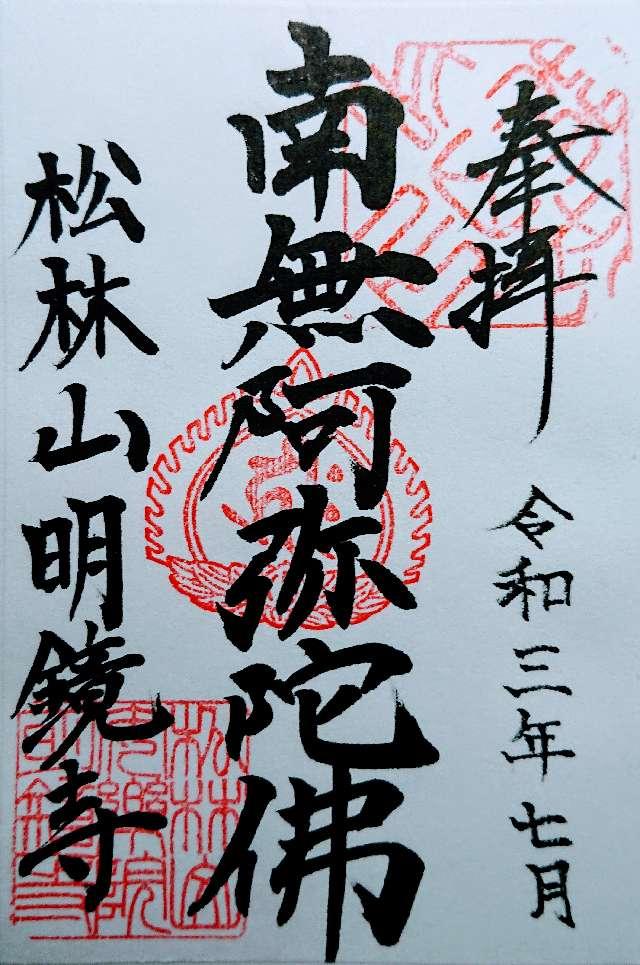 奉拝
令和三年七月
南無阿弥陀佛
松林山明鏡寺